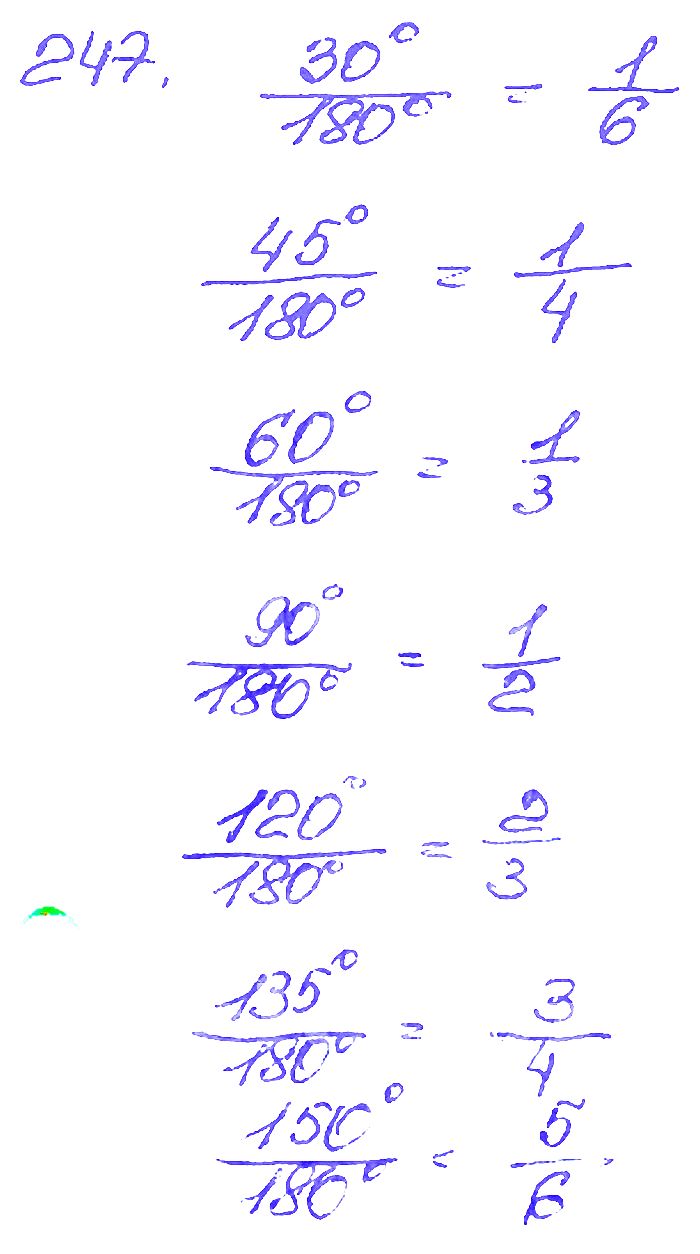 247. 30°/180° = 1/6
45°/180° = 1/4
60°/180° = 1/3
90°/180° = 1/2
120°/180° = 2/3
135°/180° = 3/4
150°/180° = 5/6.